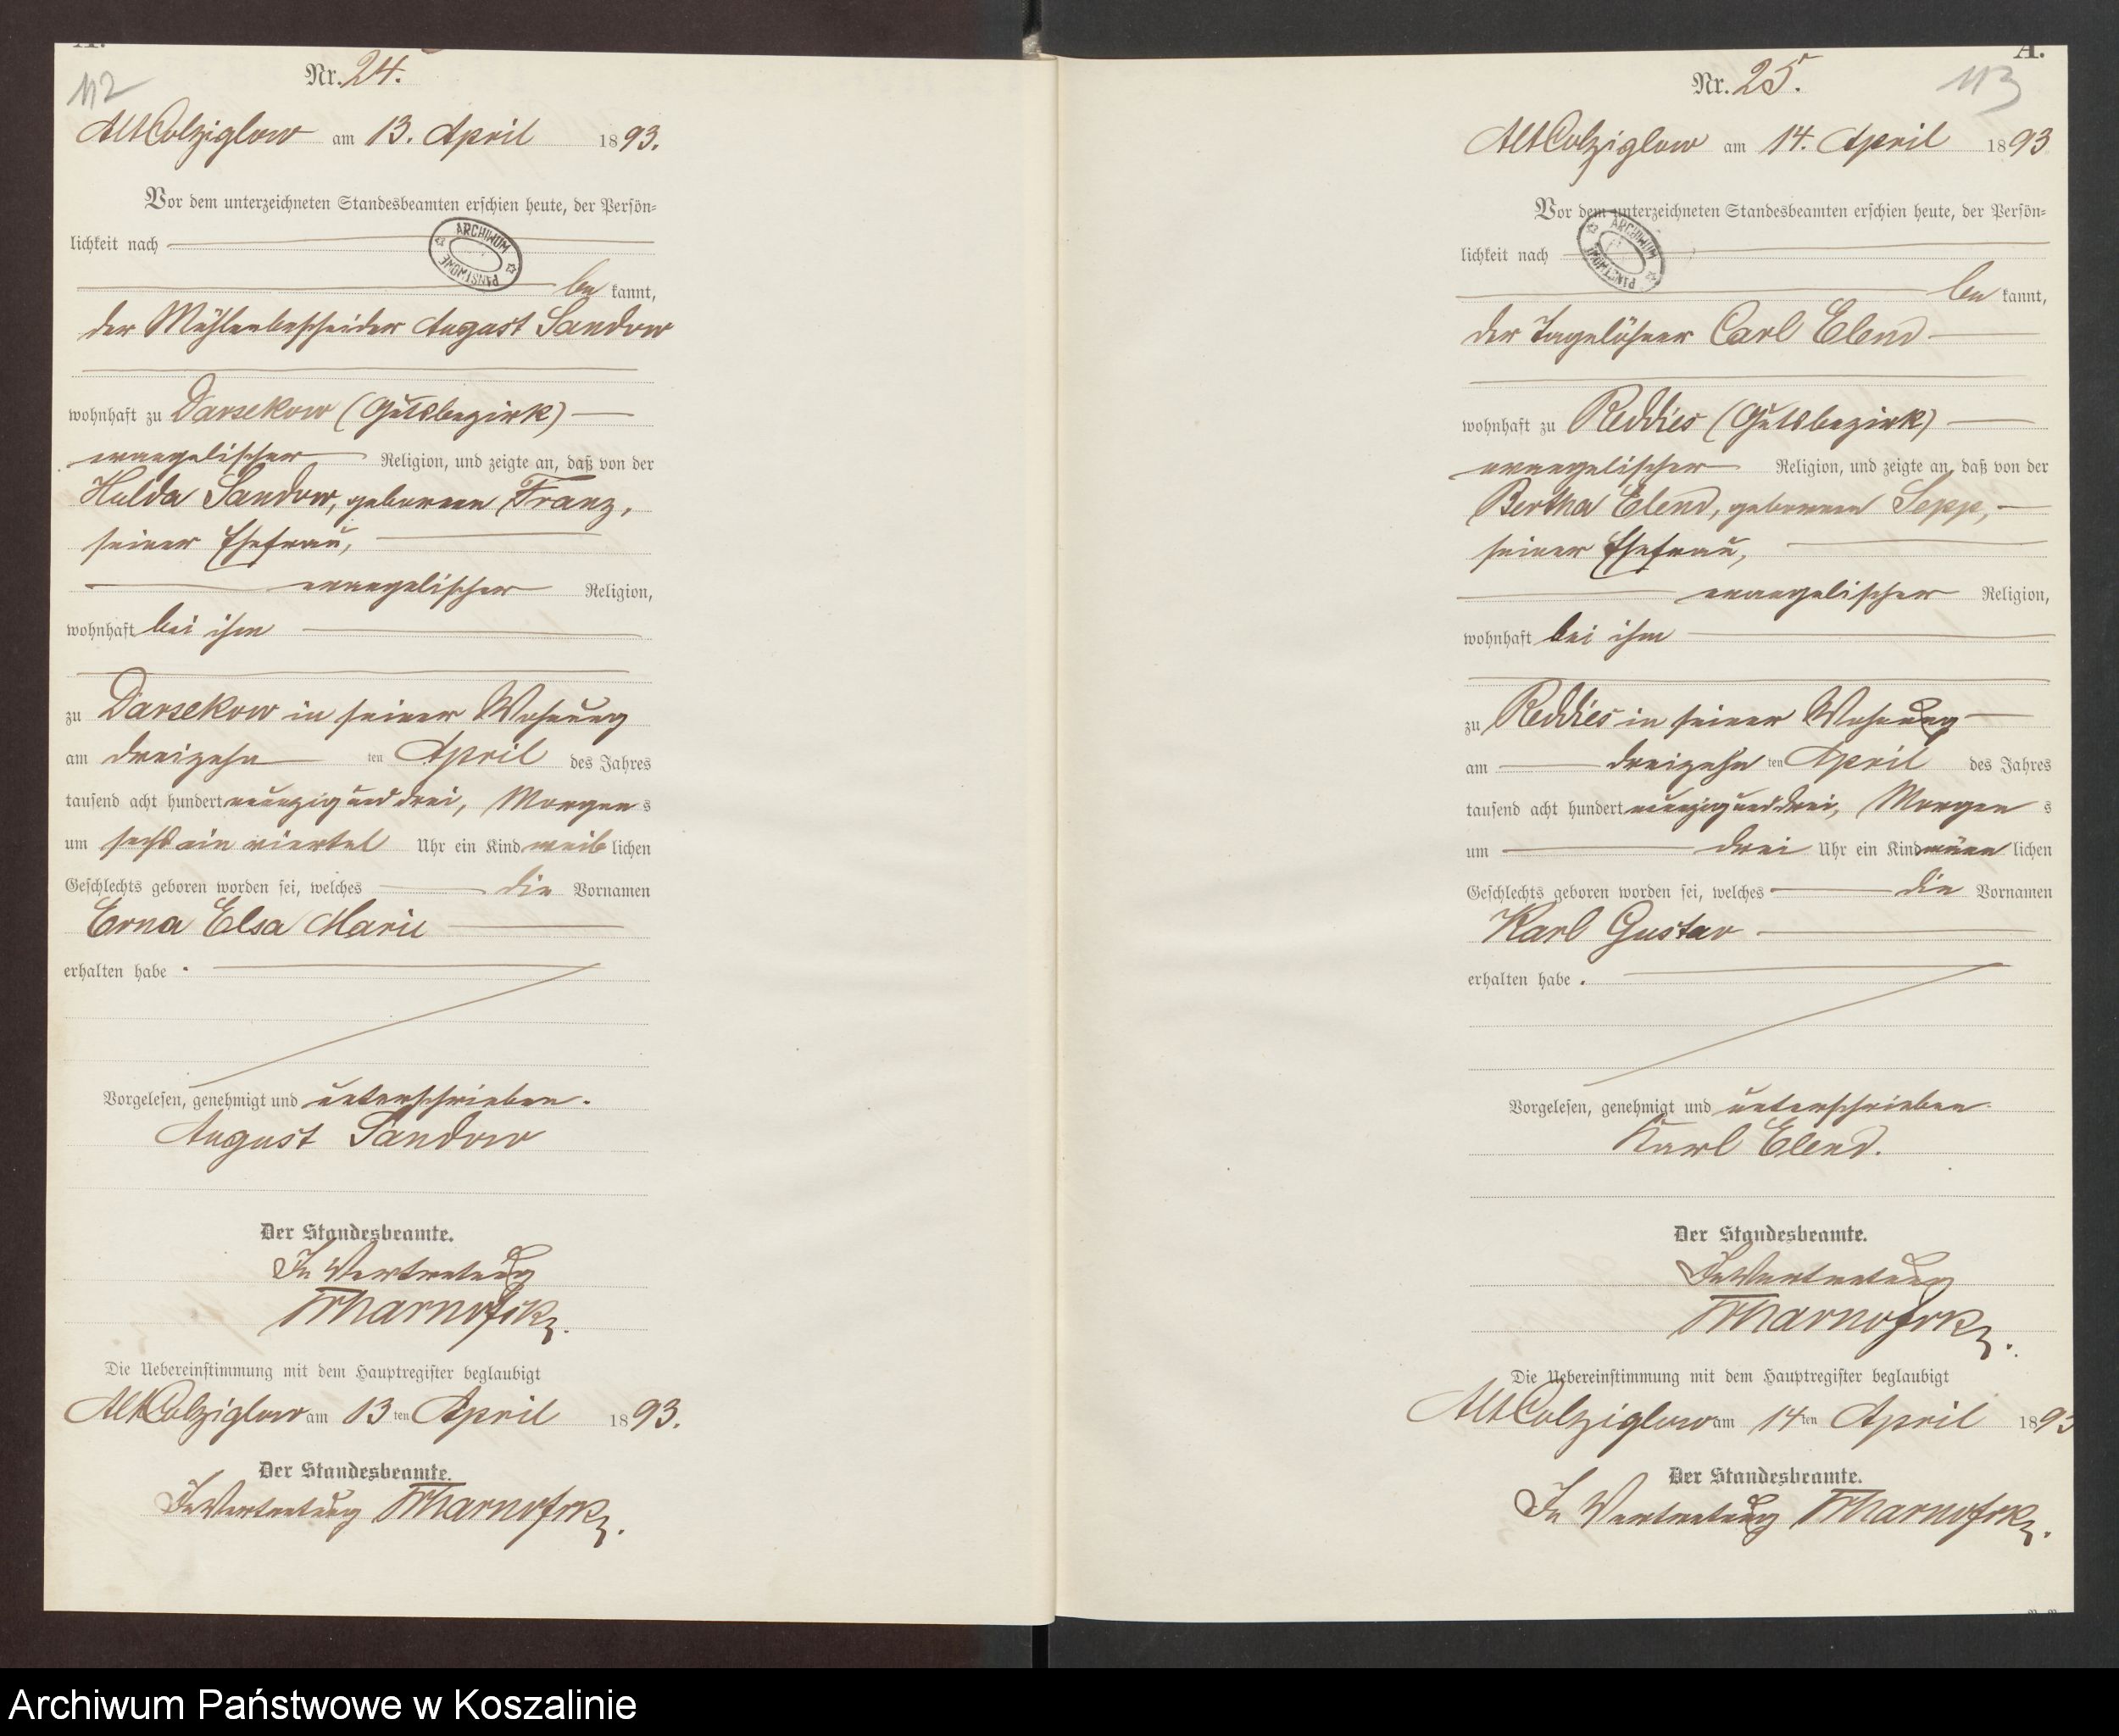 A.
112
Nr. 24.
Alt Colziglow am 13. April 1893.
Vor dem unterzeichneten Standesbeamten erschien heute, der Persön=
lichkeit nach
ARCHIWUM PAŃSTWOWE
be kannt,
der Mühlenbescheider August Sandow
wohnhaft zu Darsekow (Gutsbezirk)
evangelischer Religion, und zeigte an, daß von der
Hulda Sandow, geborenen Franz,
seiner Ehefrau,
evangelischer Religion,
wohnhaft bei ihm
zu Darsekow in seiner Wohnung
am dreizehn ten April des Jahres
tausend acht hundert neunzig und drei, Morgens
um sechs ein viertel Uhr ein Kind weiblichen
Geschlechts geboren worden sei, welches die Vornamen
Erna Elsa Marie
erhalten habe .
Vorgelesen, genehmigt und unterschrieben.
August Sandow
Der Standesbeamte.
In Vertretung
Die Uebereinstimmung mit dem Hauptregister beglaubigt
Alt Colziglow am 13 ten April 1893.
Der Standesbeamte.
In Vertretung
A.
Nr. 25.
113
Alt Colziglow am 14. April 1893
Vor dem unterzeichneten Standesbeamten erschien heute, der Persön=
lichkeit nach
ARCHIWUM PAŃSTWOWE
be kannt,
der Tagelöhner Carl Elend
wohnhaft zu Reddies (Gutsbezirk)
evangelischer Religion, und zeigte an, daß von der
Bertha Elend, geborenen Sepp,
seiner Ehefrau,
evangelischer Religion,
wohnhaft bei ihm
zu Reddies in seiner Wohnung
am dreizehn ten April des Jahres
tausend acht hundert neunzig und drei, Morgens
um drei Uhr ein Kind männlichen
Geschlechts geboren worden sei, welches die Vornamen
Karl Gustav
erhalten habe .
Vorgelesen, genehmigt und unterschrieben.
Karl Elend.
Der Standesbeamte.
In Vertretung
Die Uebereinstimmung mit dem Hauptregister beglaubigt
Alt Colziglow am 14 ten April 1893
Der Standesbeamte.
In Vertretung
Archiwum Państwowe w Koszalinie